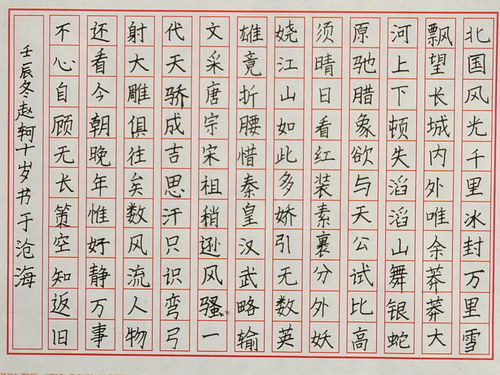 北国风光千里冰封万里雪
飘望长城内外唯余莽莽大
河上下顿失滔滔山舞银蛇
原驰腊象欲与天公试比高
须晴日看红装素裹分外妖
娆江山如此多娇引无数英
雄竟折腰惜秦皇汉武略输
文采唐宗宋祖稍逊风骚一
代天骄成吉思汗只识弯弓
射大雕俱往矣数风流人物
还看今朝晚年惟好静万事
不心自顾无长策空知返旧
壬辰冬赵轲十岁书于沧海